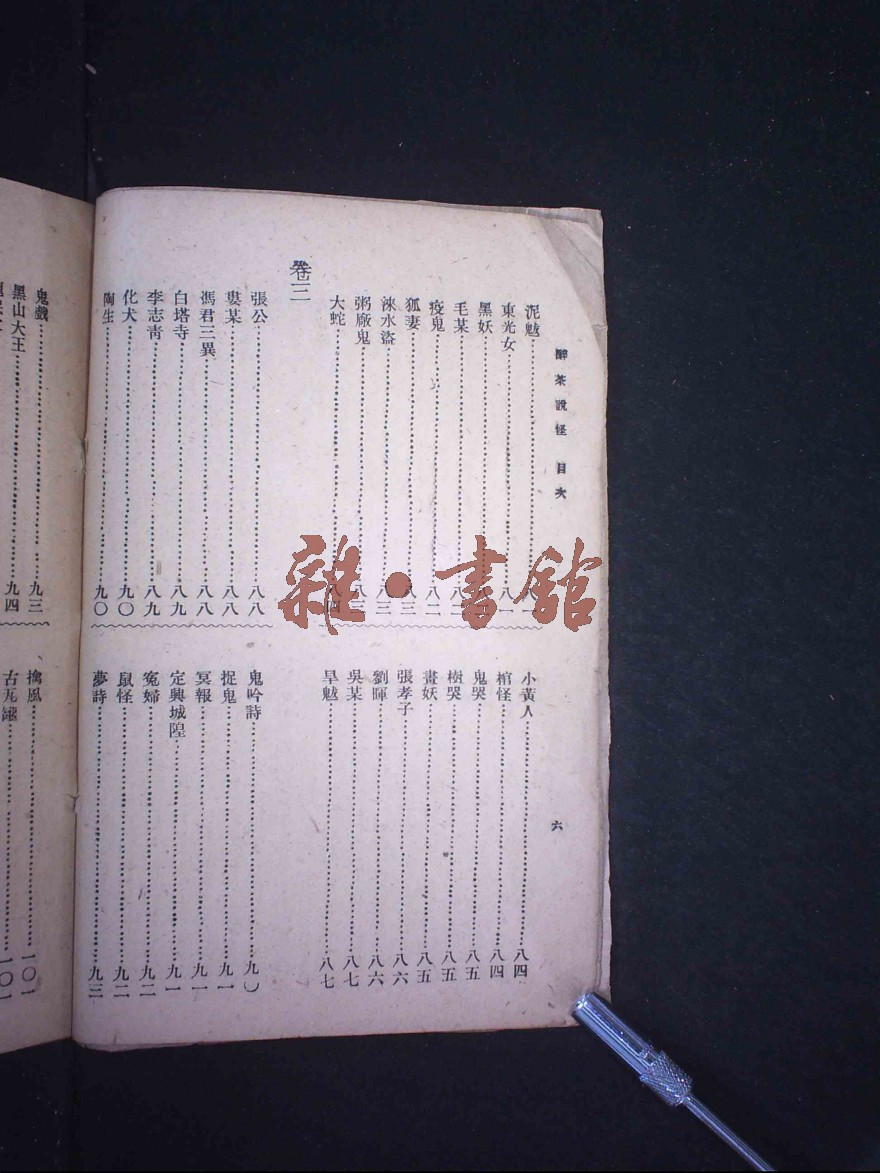 醉茶說怪 目次
六
泥魃
東光女
黑妖
毛某
疫鬼……八二
狐妻……八三
淶水盜……八三
粥廠鬼
大蛇
小黃人……八四
棺怪……八四
鬼哭……八五
樹哭……八五
畫妖……八五
張孝子……八六
劉暉……八六
吳某……八七
旱魃……八七
卷三
張公……八八
婁某……八八
馮君三異……八八
白塔寺……八九
李志青……八九
化犬……九〇
陶生……九〇
鬼吟詩……九〇
捉鬼……九一
冥報……九一
定興城隍……九一
冤婦……九二
鼠怪……九二
夢詩……九三
鬼戲……九三
黑山大王……九四
擒風……一〇一
古瓦罐……一〇一
雜·書館